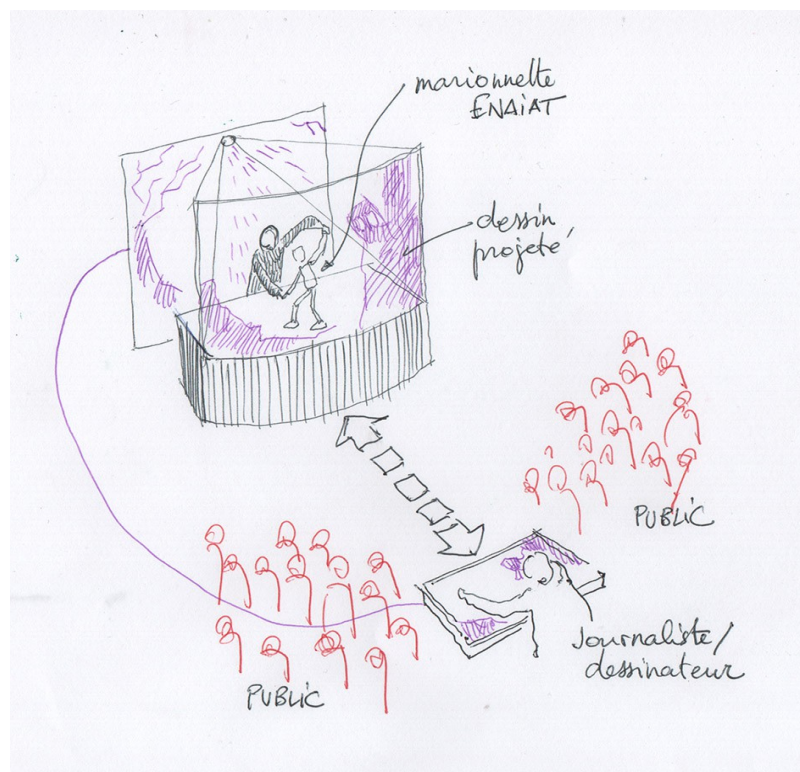 marionnette
ENAiAT
dessin
projeté
PUBLiC
Journaliste/
dessinateur
PUBLiC